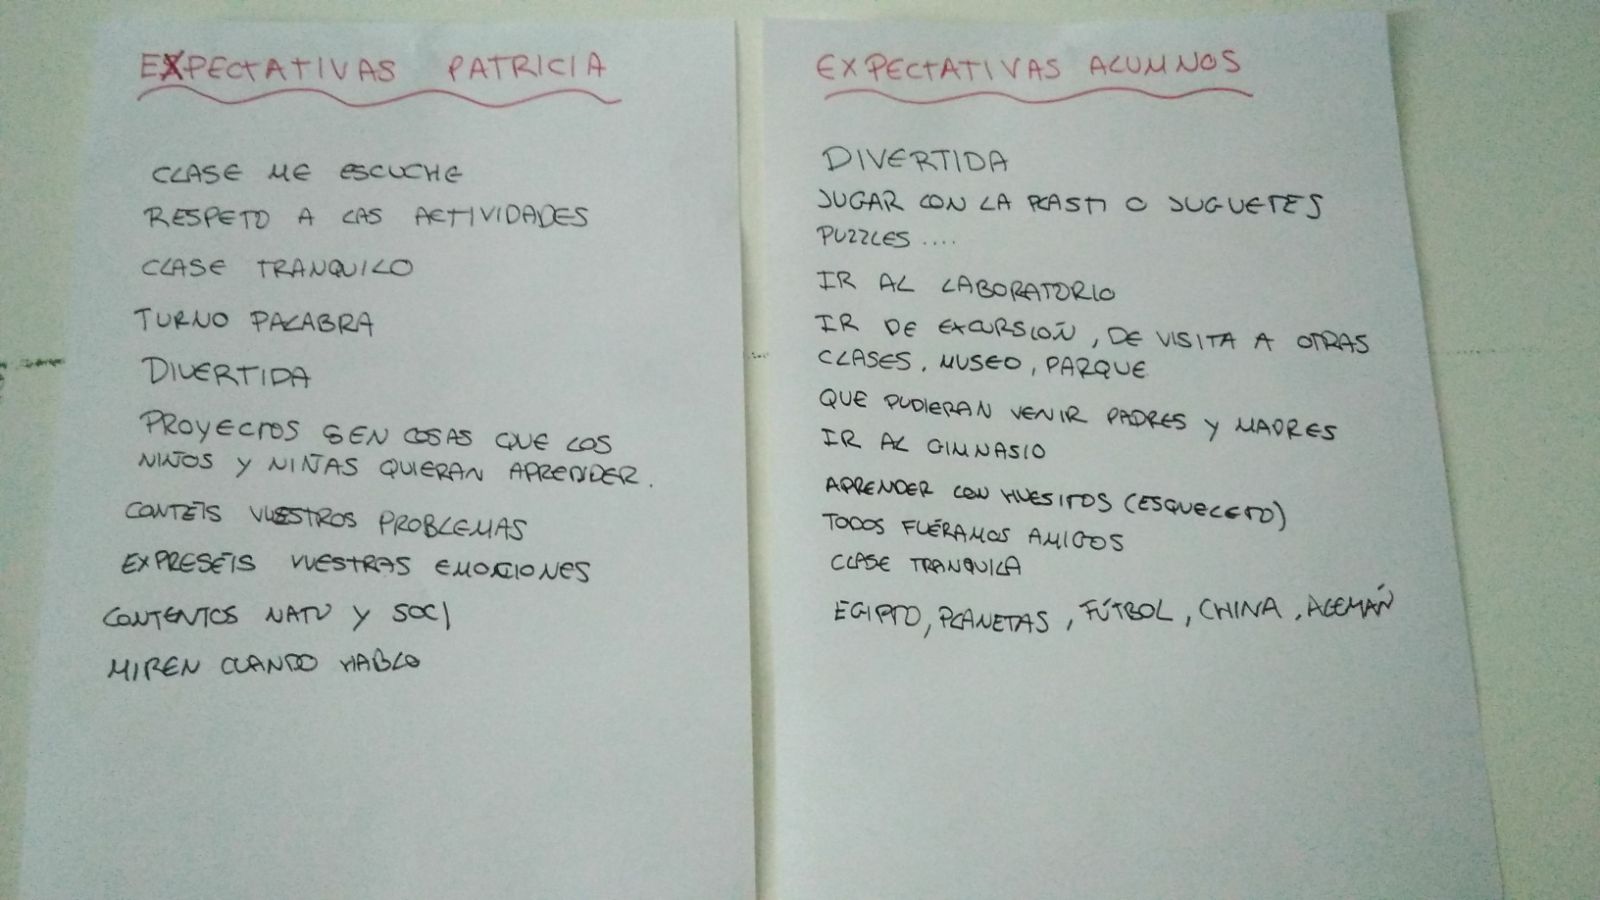 EXPECTATIVAS PATRICIA
CLASE ME ESCUCHE
RESPETO A LAS ACTIVIDADES
CLASE TRANQUILO
TURNO PALABRA
DIVERTIDA
PROYECTOS SEN COSAS QUE LOS
NIÑOS Y NIÑAS QUIERAN APRENDER.
CONTÉIS VUESTROS PROBLEMAS
EXPRESÉIS VUESTRAS EMOCIONES
CONTENTOS NATU Y SOCI
MIREN CUANDO HABLO
EXPECTATIVAS ALUMNOS
DIVERTIDA
JUGAR CON LA PLASTI O JUGUETES
PUZZLES ....
IR AL LABORATORIO
IR DE EXCURSIÓN, DE VISITA A OTRAS
CLASES, MUSEO, PARQUE
QUE PUDIERAN VENIR PADRES Y MADRES
IR AL GIMNASIO
APRENDER CON HUESITOS (ESQUELETO)
TODOS FUÉRAMOS AMIGOS
CLASE TRANQUILA
EGIPTO, PLANETAS, FÚTBOL, CHINA, ALEMÁN